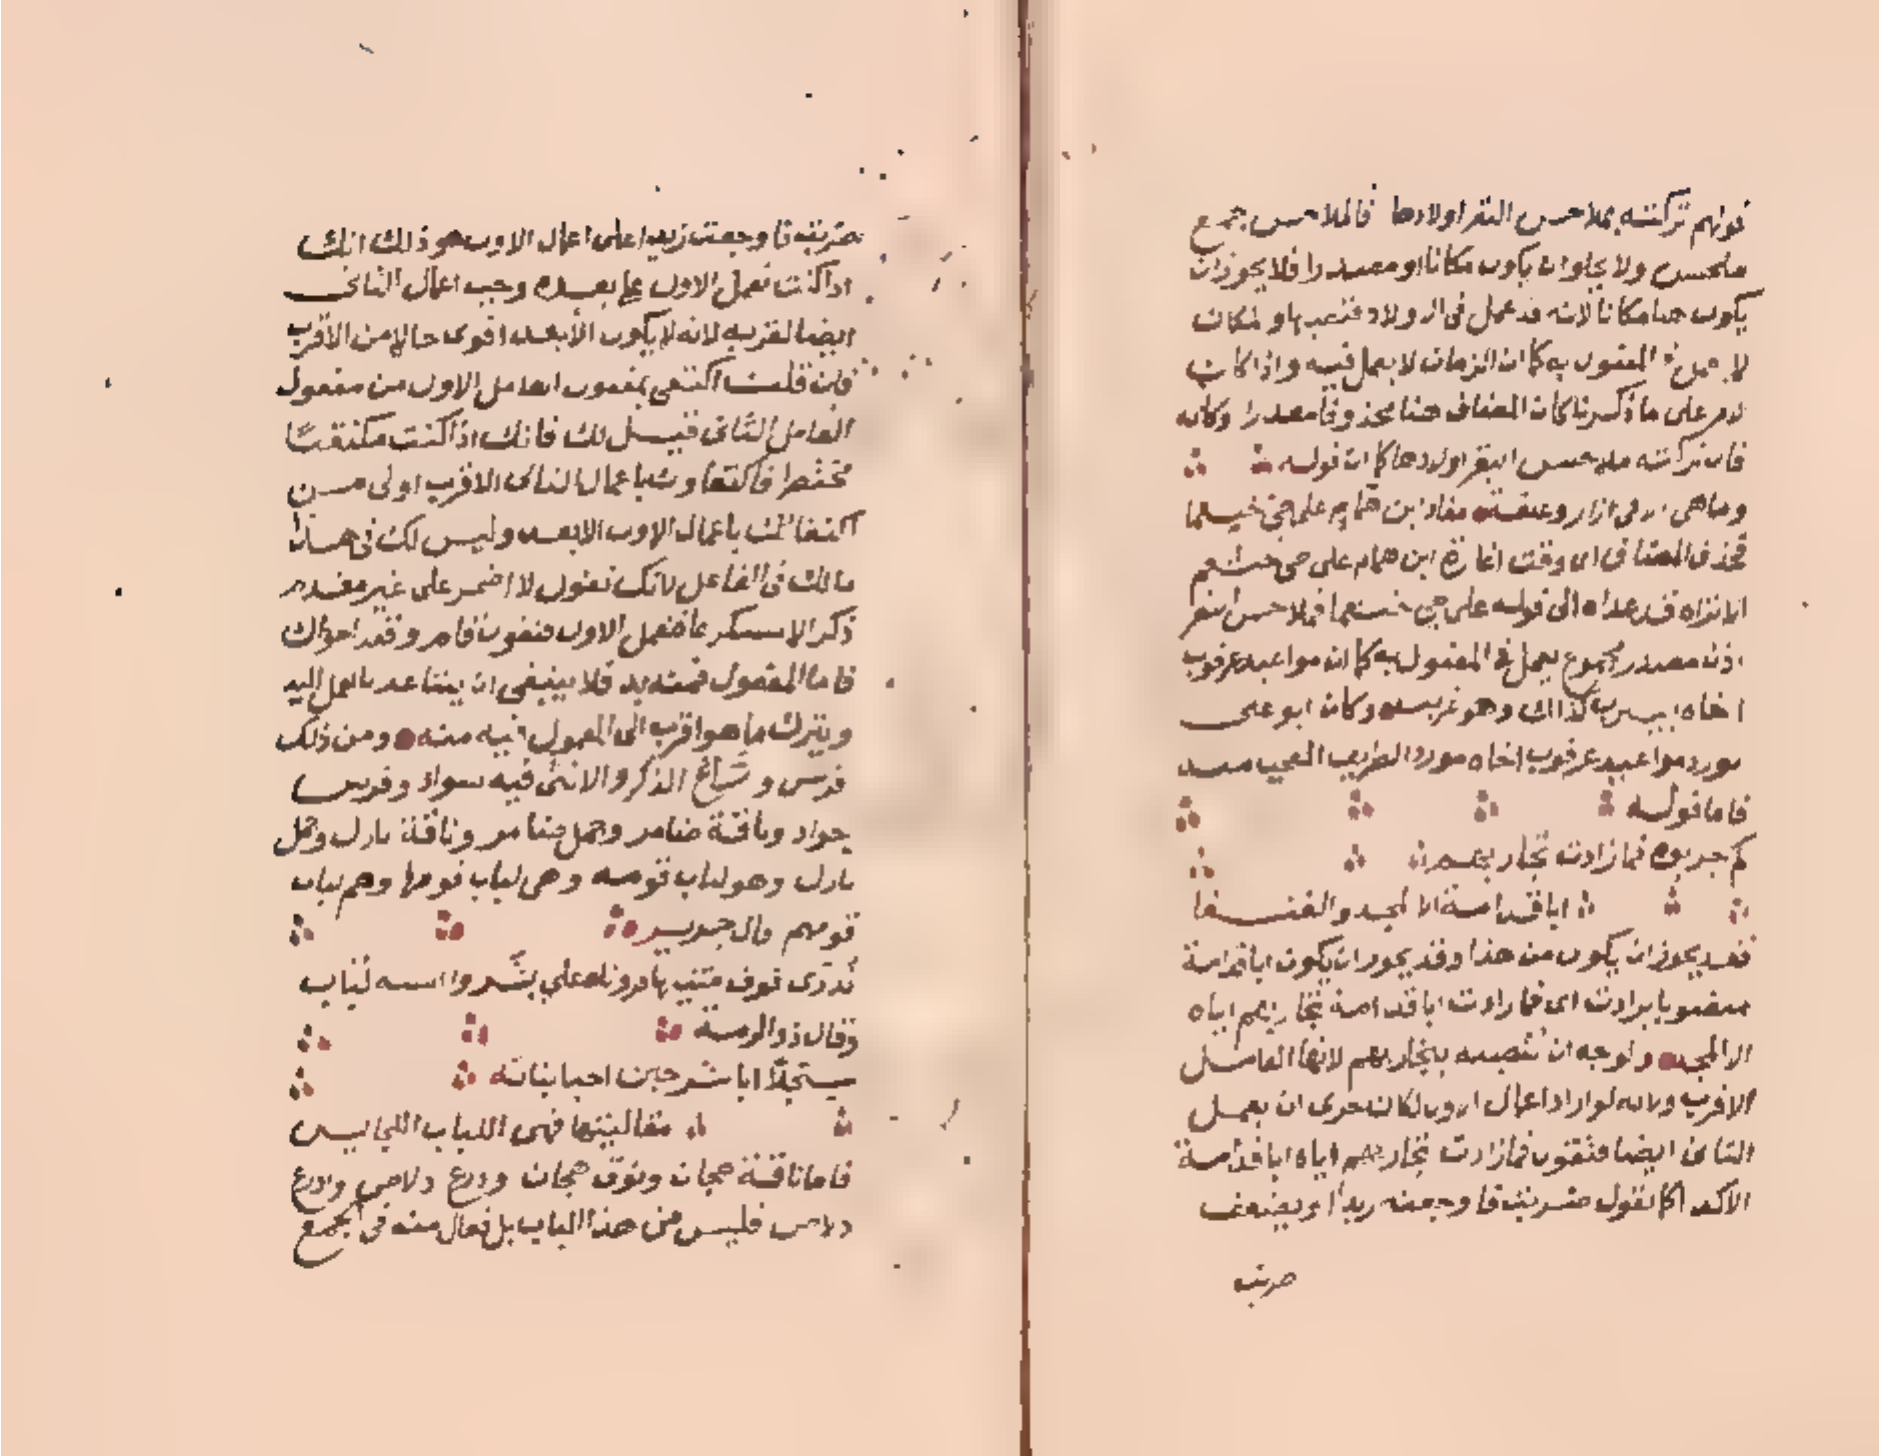 قولهم تركته بملاحس البقر اولادها فالملاحس جمع
ملحس ولا يخلوا ان يكون مكانا او مصدرا فلا يجوز ان
يكون هنا مكانا لانه قد عمل فى الاولاد فنصبها والمكان
لا يعمل فى المفعول به كما ان الزمان لا يعمل فيه واذا كان
الامر على ما ذكرنا كان المضاف هنا محذوفا مقدرا وكانه
قال تركته بملاحس البقر اولادها كما ان قوله
وما هى الا فى ازار وعلقة مغار ابن همام على حى خثعما
محذوف المضاف اى وقت اغارة ابن همام على حى خثعم
الا تراه قد عداه الى قوله على حى خثعما فملاحس البقر
اذن مصدر مجموع يعمل فى المفعول به كما ان مواعيد عرقوب
اخاه بيثرب كذلك وهو غريب وكان ابو على
يورد مواعيد عرقوب اخاه مورد الطريف العجيب
فاما قوله
كم جربوه فما زادت تجاربهم
ابا قدامة الا المجد والفنعا
فقد يجوز ان يكون من هذا وقد يجوز ان يكون ابا قدامة
منصوبا بزادت اى فما زادت ابا قدامة تجاربهم اياه
الا المجد والوجه ان تنصبه بتجاربهم لانها العامل
الاقرب ولانه لو اراد اعمال الاول لكان حرى ان يعمل
الثانى ايضا فتقول فما زادت تجاربهم اياه ابا قدامة
الا كذا كما تقول ضربت فاوجعته زيدا ويضعف
ضربت
ضربت فاوجعت زيدا على اعمال الاول وذلك انك
اذا كنت تعمل الاول على بعده وجب اعمال الثانى
ايضا لقربه لانه لا يكون الأبعد اقوى حالا من الأقرب
فان قلت اكتفى بمفعول العامل الاول من مفعول
العامل الثانى قيل لك فانك اذا كنت مكتفيا
مختصرا فاكتفاوك باعمال الثانى الاقرب اولى من
اكتفائك باعمال الاول الابعد وليس لك فى هذا
مالك فى الفاعل لانك تقول لا اضمر على غير تقدم
ذكر الا مستكرها فتعمل الاول فتقول قام وقعدا اخواك
فاما المفعول فمنه بد فلا ينبغى ان يتباعد بالعمل اليه
ويترك ما هو اقرب الى المعمول فيه منه ومن ذلك
فرس وساغ الذكر والانثى فيه سواء وفرس
جواد وناقة ضامر وجمل ضامر وناقة بازل وجمل
بازل وهو لباب قومه وهى لباب قومها وهم لباب
قومهم قال جرير
تدرى فوق متنيها قرونا على بشر وآنسه لباب
وقال ذو الرمة
سبحلا ابا شرخين احيا بناته
مقاليتها فهى اللباب الحبايس
فاما ناقة هجان ونوق هجان ودرع دلاص وادرع
دلاص فليس من هذا الباب بل فعال منه فى الجمع